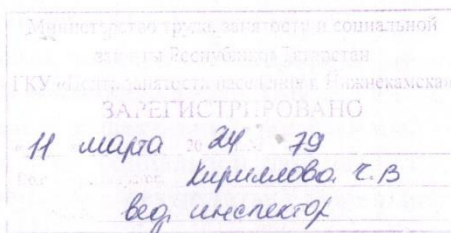 Министерство труда, занятости и социальной
защиты Республики Татарстан
ГКУ «Центр занятости населения г. Нижнекамска»
ЗАРЕГИСТРИРОВАНО
11 марта 2024 79
Кириллова
вед. инспектор